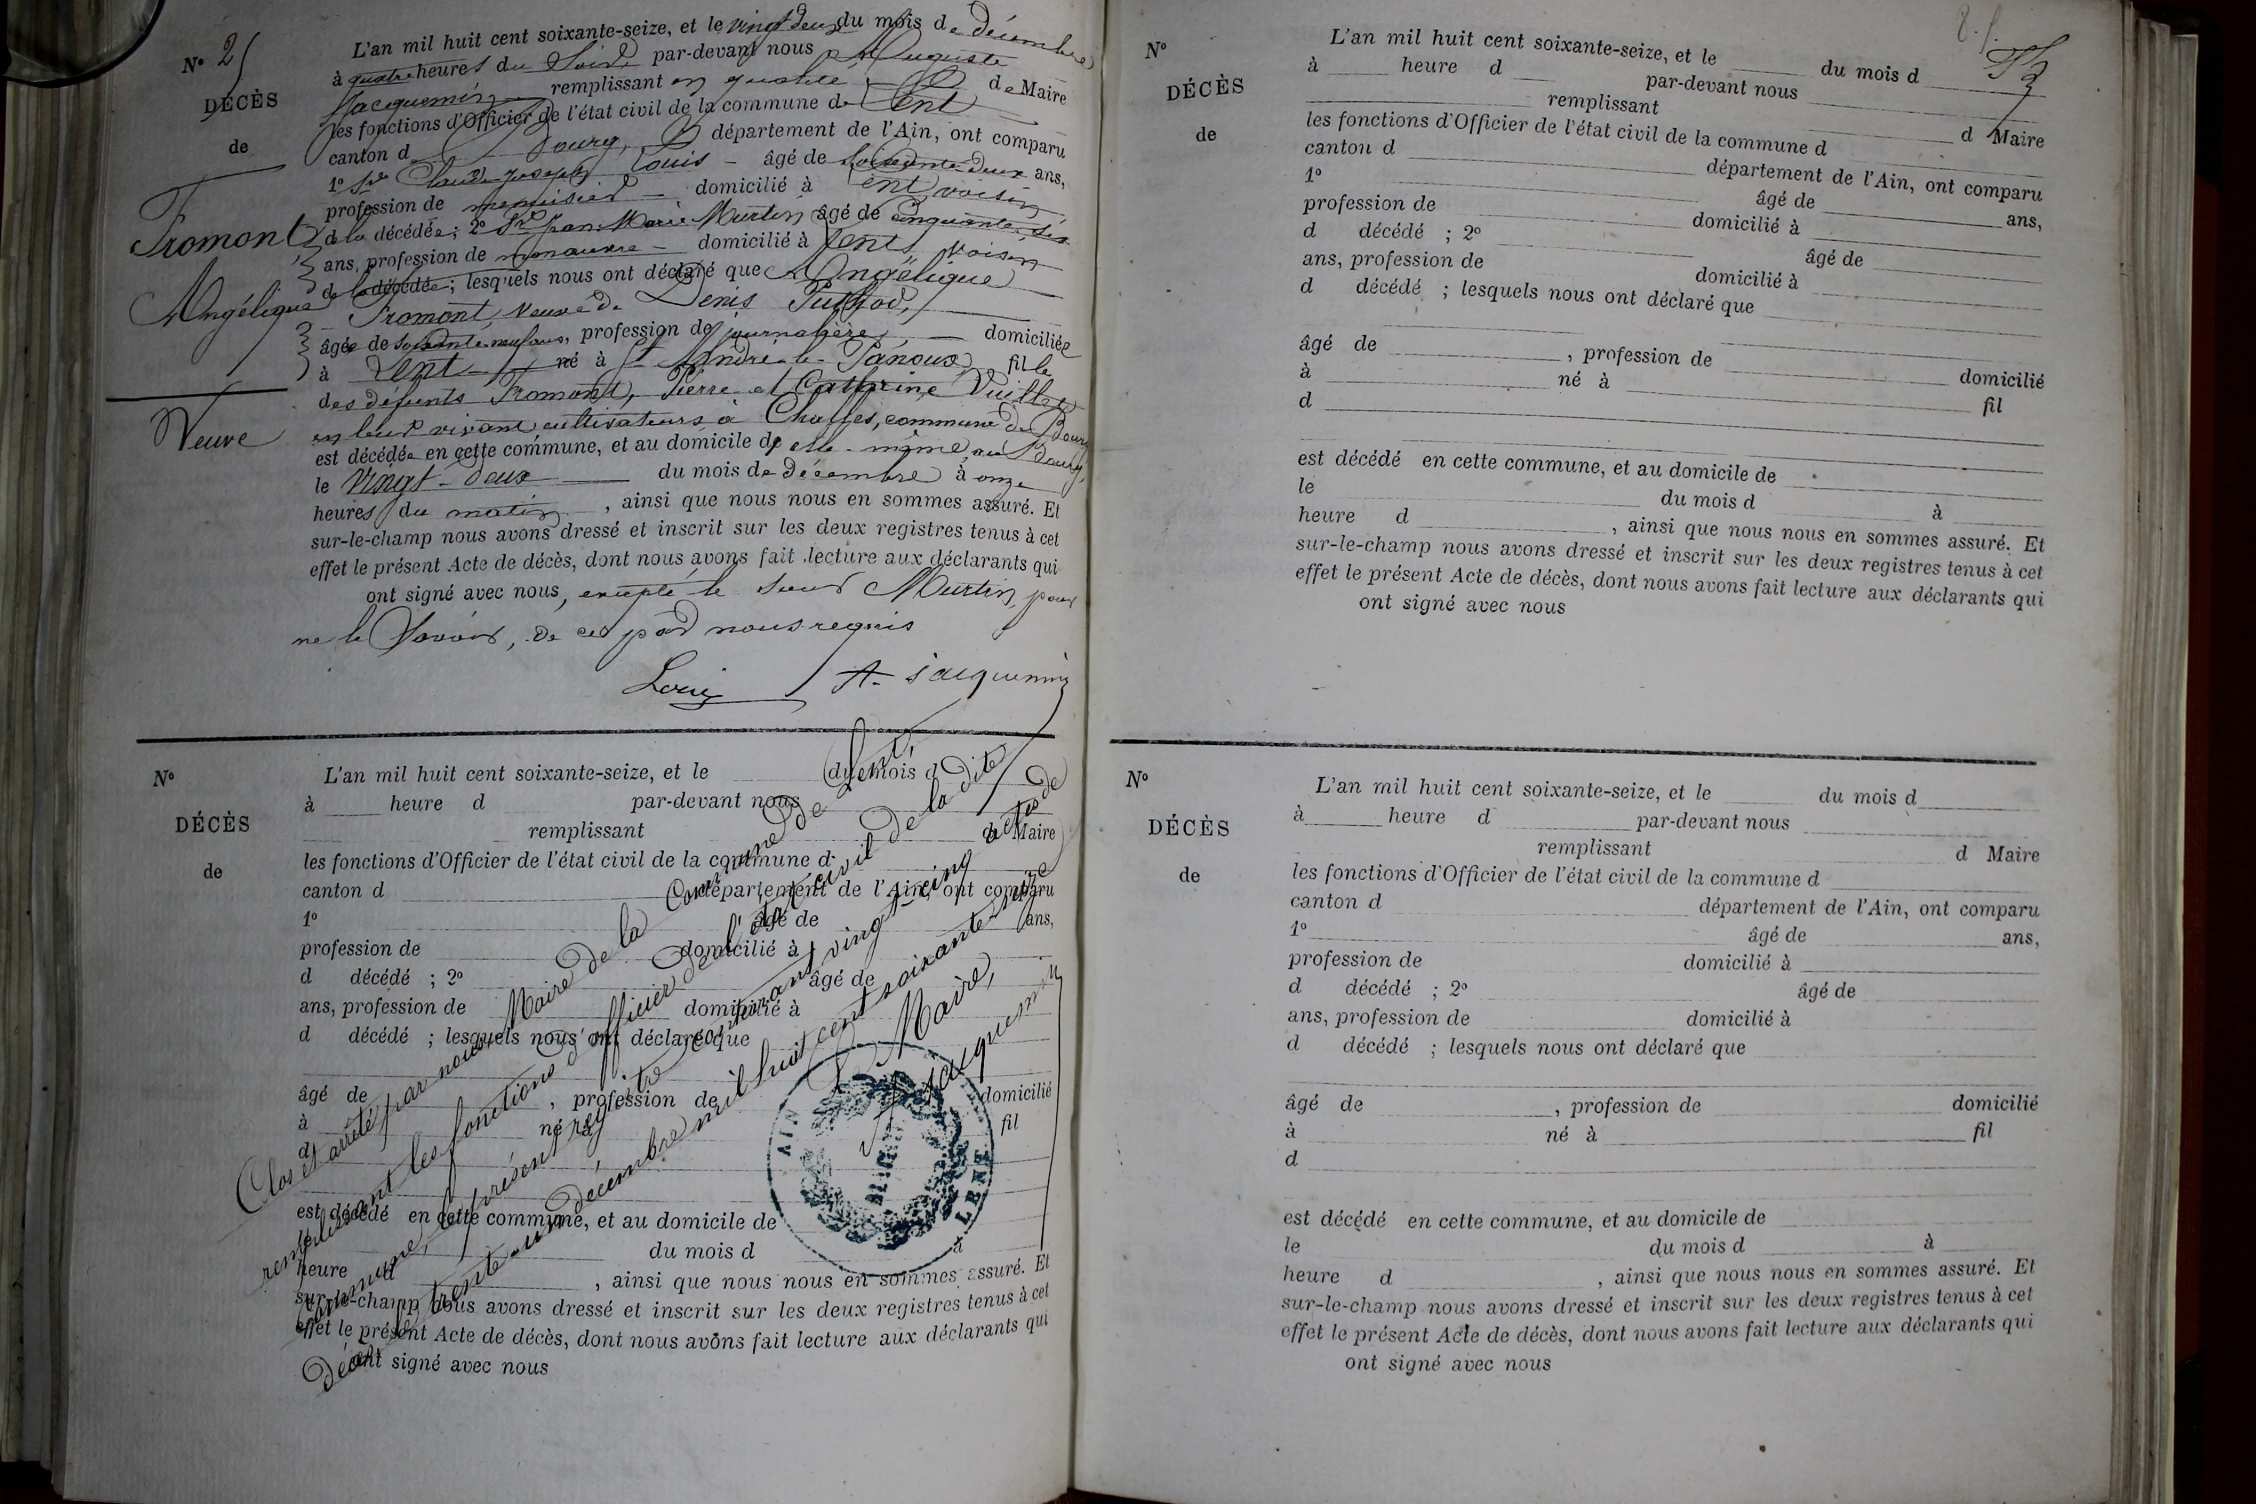 N° 25
DÉCÈS
de
Fromont
Angélique
Veuve
L'an mil huit cent soixante-seize, et le vingt deux du mois de décembre
à quatre heures du Soir par-devant nous Auguste
Jacquemin remplissant en qualité de Maire
les fonctions d'Officier de l'état civil de la commune de Lent
canton de Bourg, département de l'Ain, ont comparu
1° Sr Claude Joseph Louis âgé de soixante-deux ans,
profession de menuisier domicilié à Lent voisin
de la décédée ; 2° Sr Jean-Marie Murtin âgé de cinquante-six
ans, profession de manœuvre domicilié à Lent, voisin
de la décédée ; lesquels nous ont déclaré que Angélique
Fromont, Veuve de Denis Puthod,
âgée de soixante-neuf ans, profession de journalière domiciliée
à Lent né à St André-le-Panoux fille
des défunts Fromont, Pierre et Catherine Vuillet
en leur vivant cultivateurs à Challes, commune de Bourg
est décédée en cette commune, et au domicile de elle-même, au Bourg,
le Vingt-deux du mois de décembre à onze
heures du matin, ainsi que nous nous en sommes assuré. Et
sur-le-champ nous avons dressé et inscrit sur les deux registres tenus à cet
effet le présent Acte de décès, dont nous avons fait lecture aux déclarants qui
ont signé avec nous, excepté le sieur Murtin, pour
ne le Savoir, de ce par nous requis
Louis A. Jacquemin
N°
DÉCÈS
de
L'an mil huit cent soixante-seize, et le du mois d
à heure d par-devant nous
remplissant d Maire
les fonctions d'Officier de l'état civil de la commune d
canton d département de l'Ain, ont comparu
1° âgé de ans,
profession de domicilié à
d décédé ; 2° âgé de
ans, profession de domicilié à
d décédé ; lesquels nous ont déclaré que
âgé de , profession de domicilié
à né à fil
d
est décédé en cette commune, et au domicile de
le du mois d à
heure d , ainsi que nous nous en sommes assuré. Et
sur-le-champ nous avons dressé et inscrit sur les deux registres tenus à cet
effet le présent Acte de décès, dont nous avons fait lecture aux déclarants qui
ont signé avec nous
Clos et arrêté par nous, Maire de la Commune de Lent,
remplissant les fonctions d'officier de l'état civil de la dite
Commune, le présent registre contenant vingt-cinq actes de
Décès, le trente-un décembre mil huit cent soixante-seize
Le Maire,
A. Jacquemin
AIN
LENT
N°
DÉCÈS
de
L'an mil huit cent soixante-seize, et le du mois d
à heure d par-devant nous
remplissant d Maire
les fonctions d'Officier de l'état civil de la commune d
canton d département de l'Ain, ont comparu
1° âgé de ans,
profession de domicilié à
d décédé ; 2° âgé de
ans, profession de domicilié à
d décédé ; lesquels nous ont déclaré que
âgé de , profession de domicilié
à né à fil
d
est décédé en cette commune, et au domicile de
le du mois d à
heure d , ainsi que nous nous en sommes assuré. Et
sur-le-champ nous avons dressé et inscrit sur les deux registres tenus à cet
effet le présent Acte de décès, dont nous avons fait lecture aux déclarants qui
ont signé avec nous
N°
DÉCÈS
de
L'an mil huit cent soixante-seize, et le du mois d
à heure d par-devant nous
remplissant d Maire
les fonctions d'Officier de l'état civil de la commune d
canton d département de l'Ain, ont comparu
1° âgé de ans,
profession de domicilié à
d décédé ; 2° âgé de
ans, profession de domicilié à
d décédé ; lesquels nous ont déclaré que
âgé de , profession de domicilié
à né à fil
d
est décédé en cette commune, et au domicile de
le du mois d à
heure d , ainsi que nous nous en sommes assuré. Et
sur-le-champ nous avons dressé et inscrit sur les deux registres tenus à cet
effet le présent Acte de décès, dont nous avons fait lecture aux déclarants qui
ont signé avec nous